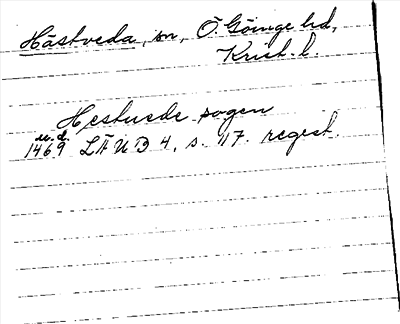 Hästveda, sn, Ö. Göinge hd,
Krist. l.
Hestuede sogen
u.d.
1469 LÄUB 4, s. 117. regest.